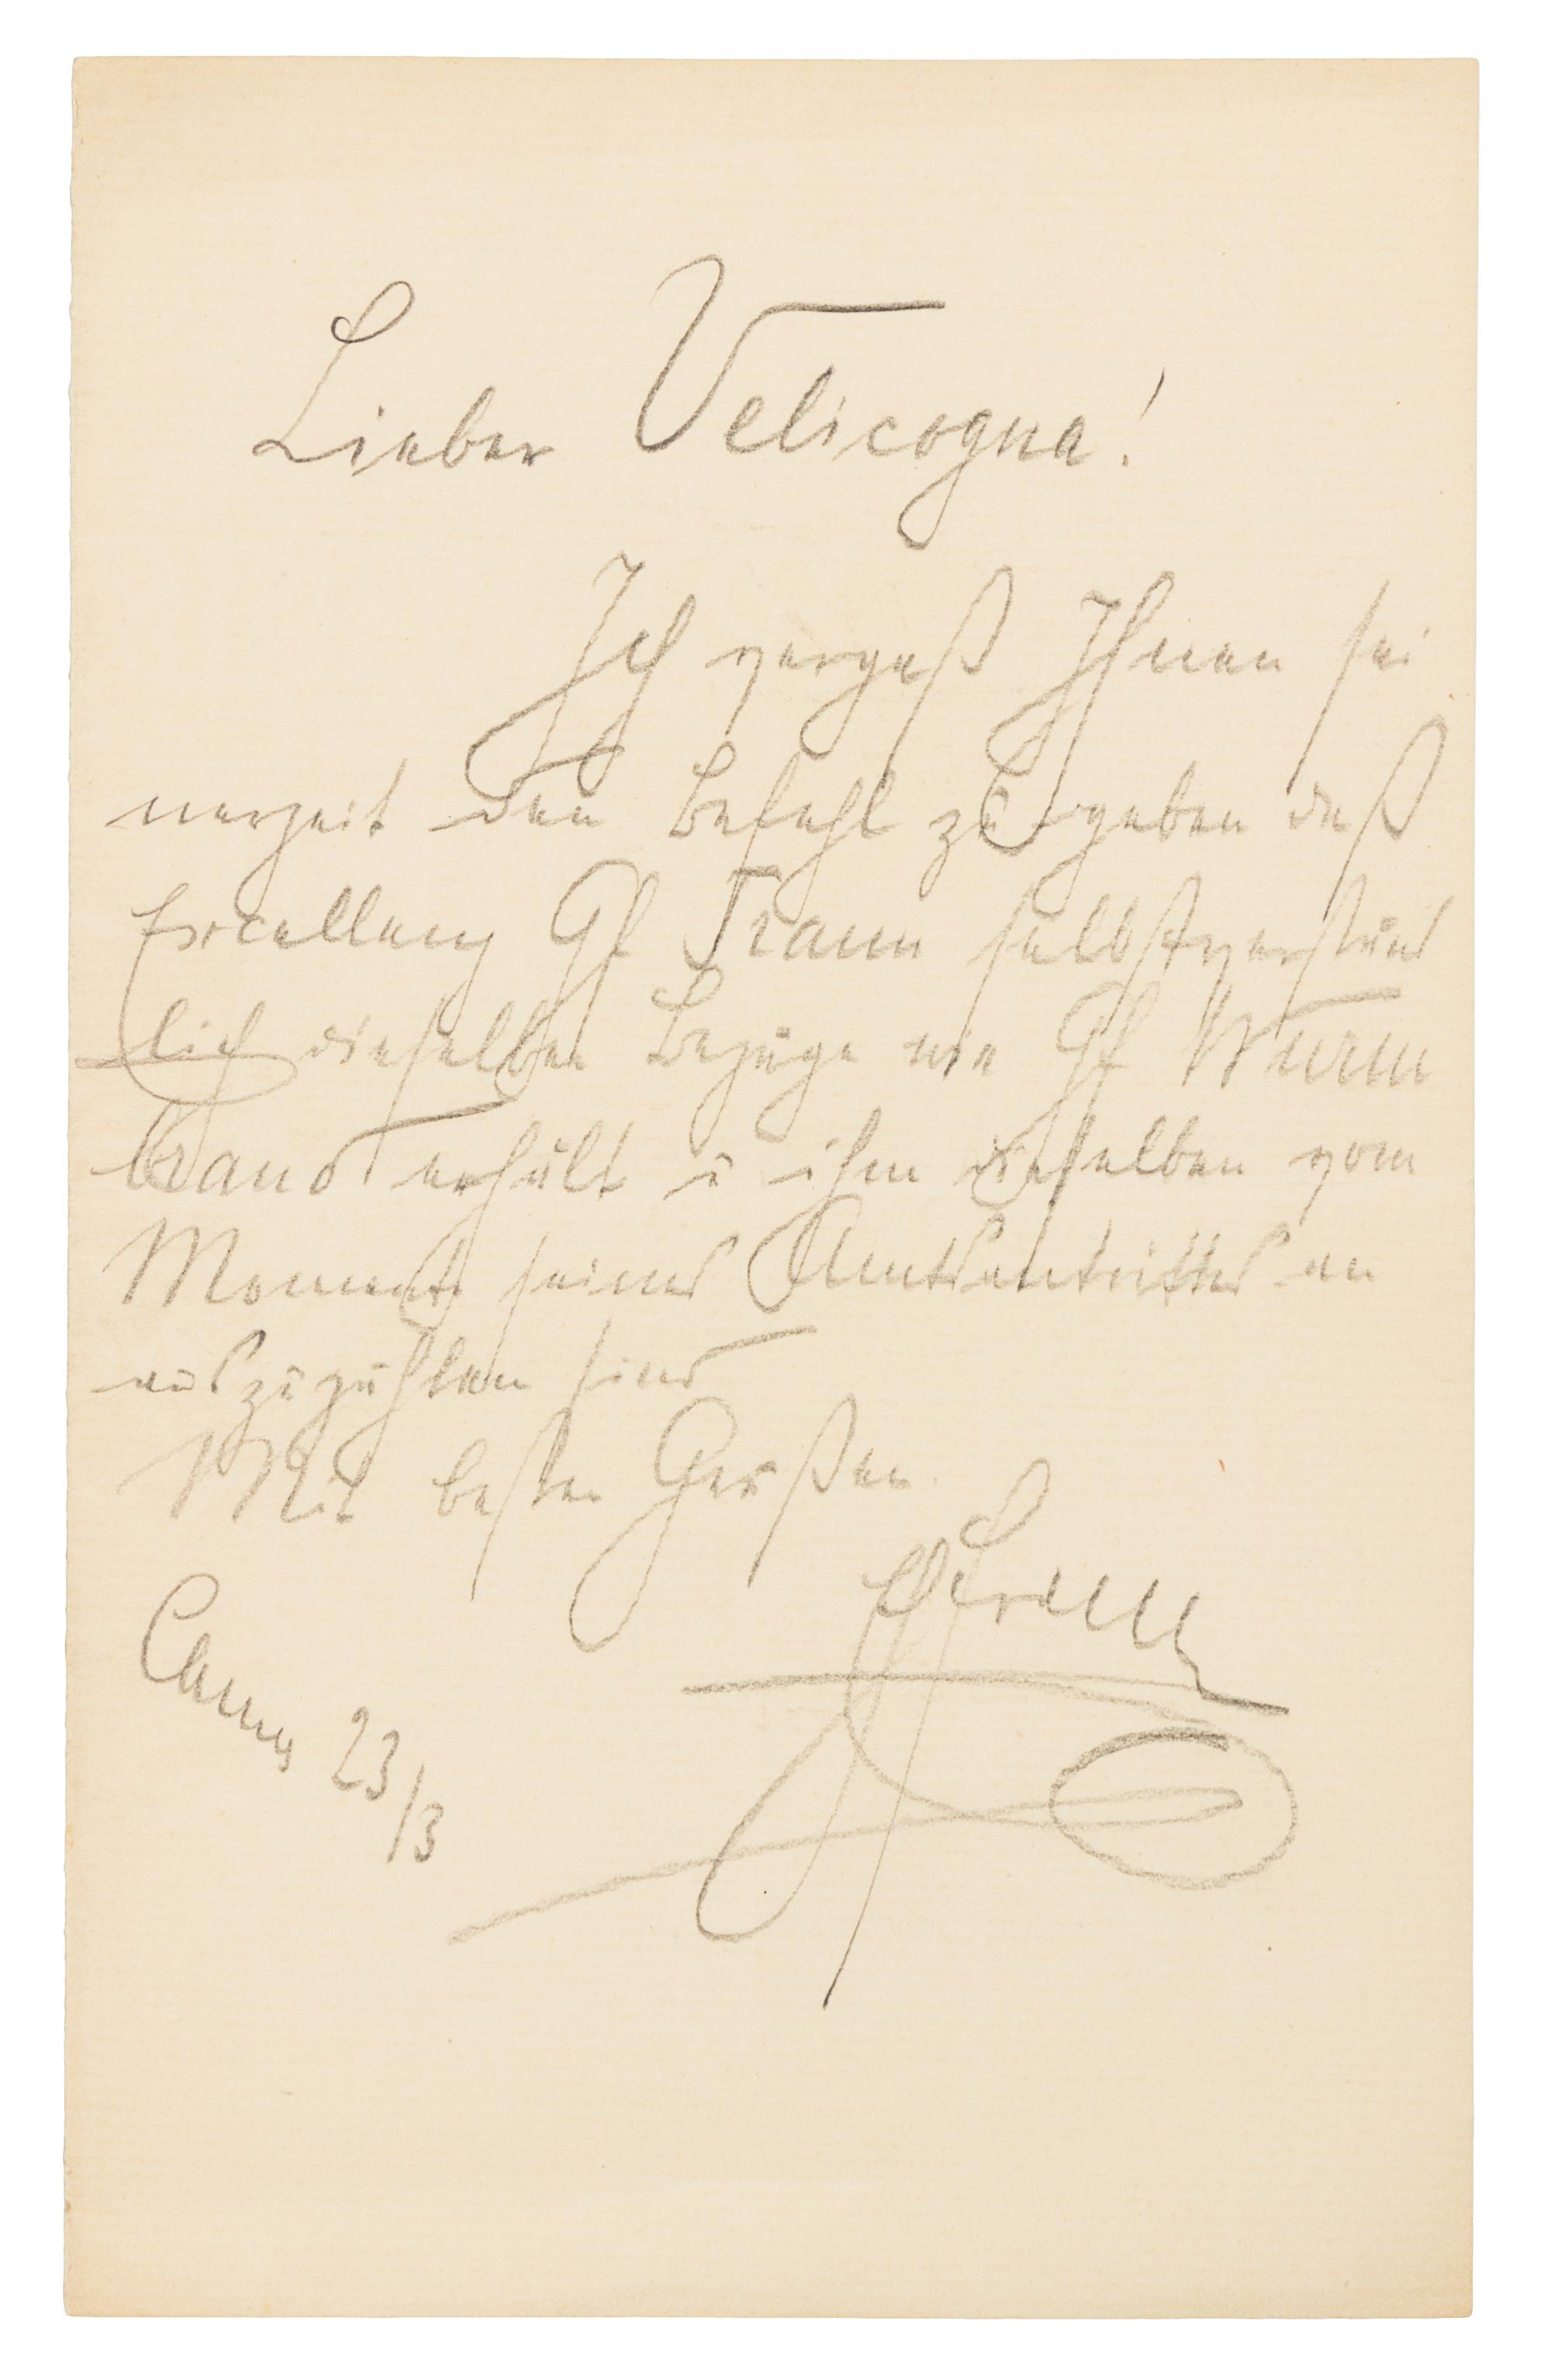 Lieber Velicogna!
Ich vergaß Ihnen sei
nerzeit den Befehl zu geben daß
Excellenz Gf Traun selbstverständ
lich dieselben Bezüge wie Gf Wurm
brand erhält u ihm dieselben vom
Momente seines Amtsantrittes an
auszuzahlen sind
Mit besten Grüßen
EhFranz
Cannes 23/3